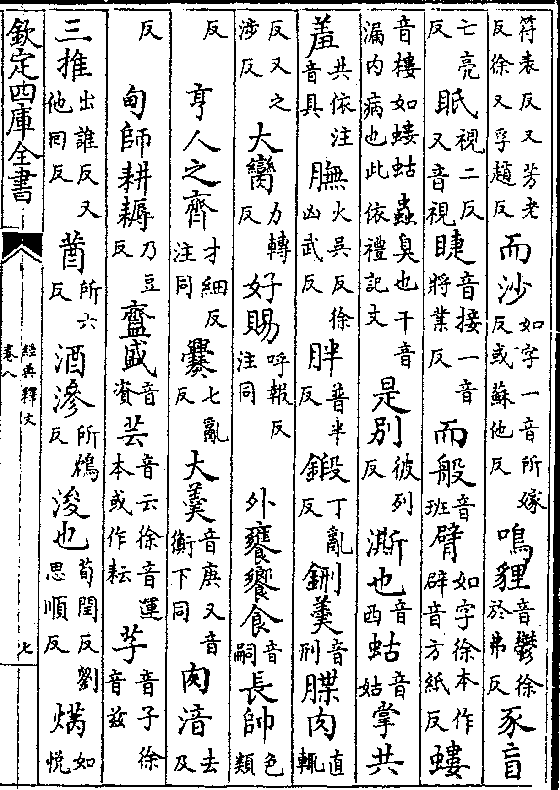 符表反又芳老反徐又孚趙反而沙如字一音所嫁反或蘇他反鳴貍音鬱徐於弗反豕盲
亡亮反眡視二反又音視睫音接一音將業反而般音班臂如字徐本作辟音方紙反螻
音樓如螻蛄蟲臭也干音漏内病也此依禮記文是別彼列反澌也音西蛄音姑掌共
羞共依注音具膴火吳反徐凶武反胖普半反鍛丁亂反鉶羹音刑䐑肉直輒
反又之涉反大臠力轉反好賜呼報反注同外饔饗食音嗣長帥色類
反亨人之齊才細反注同爨七亂反大羹音庚又音衡下同肉湆去及
反甸師耕耨乃豆反齍盛音資芸音云徐音運本或作耘芓音子徐音兹
三推出誰反又他囘反莤所六反酒滲所鴆反浚也荀閏反劉思順反焫如悅
欽定四庫全書
經典釋文
卷八
七